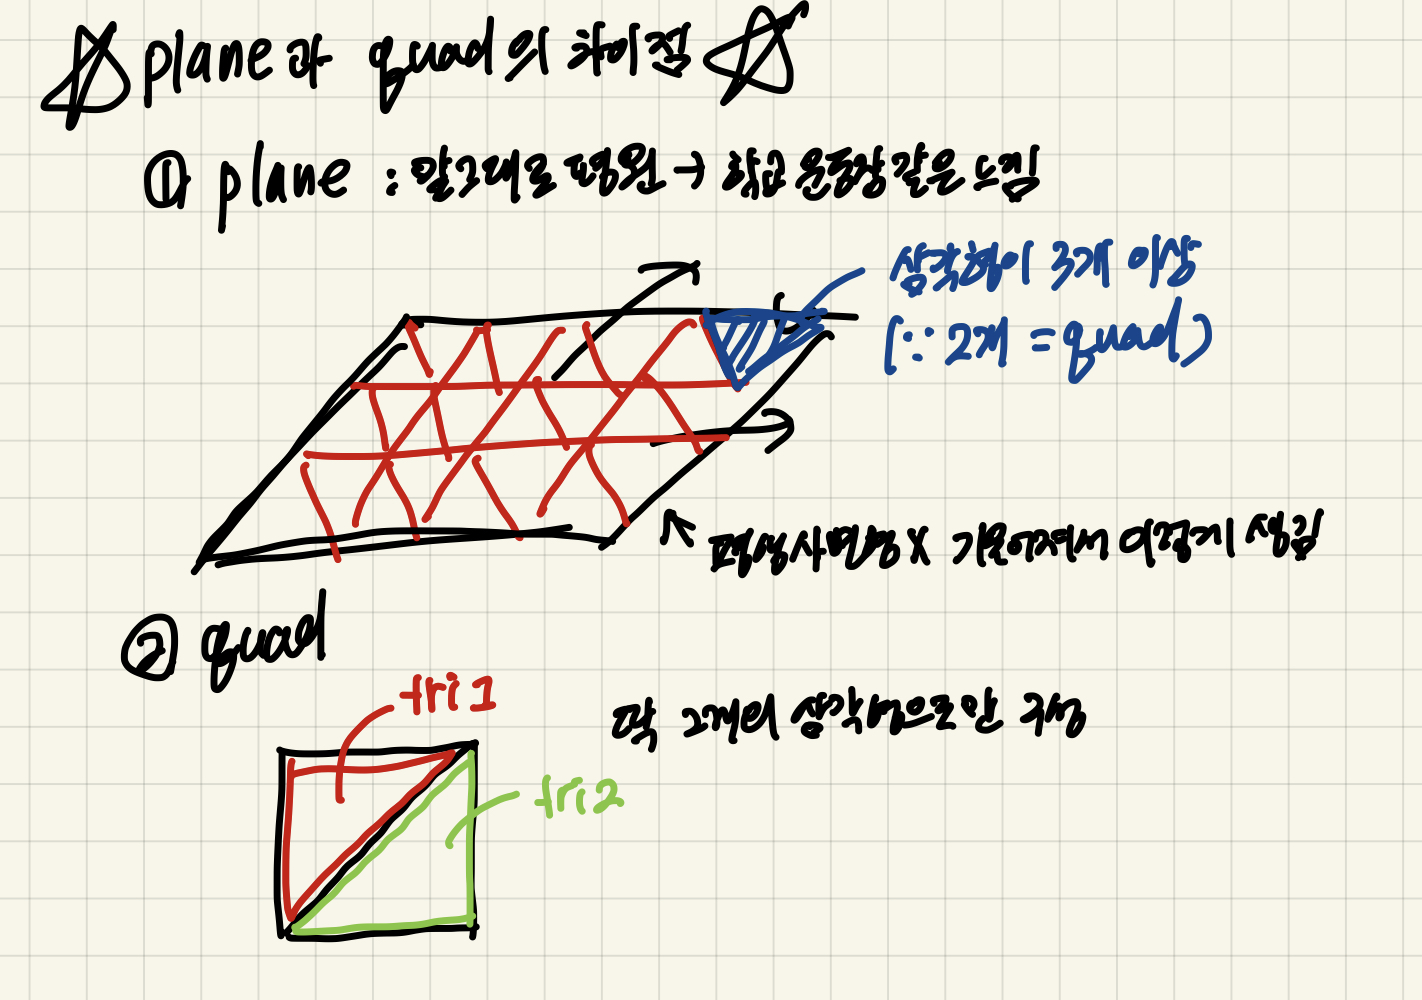 plane과 quad의 차이점
① plane : 말그대로 평원 → 학교 운동장 같은 느낌
삼각형이 3개 이상
(∵ 2개 = quad)
평행사변형 X 기울어져서 이렇게 생김
② quad
tri1
딱 2개의 삼각형으로만 구성
tri2